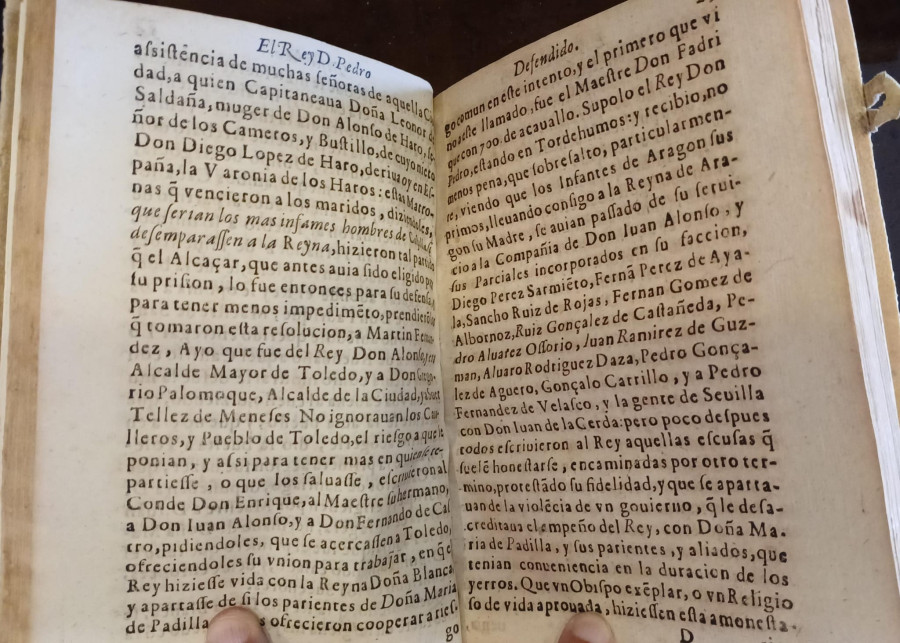 El Rey D. Pedro
assistēcia de muchas señoras de aquella Ciu
dad, a quien Capitaneaua Doña Leonor de
Saldaña, muger de Don Alonso de Haro, Se-
ñor de los Cameros, y Bustillo, de cuyo nieto
Don Diego Lopez de Haro, deriua oy en Es-
paña, la Varonia de los Haros: estas Matro-
nas q̄ vencieron a los maridos, diziendoles,
que serian los mas infames hombres de Castilla, si
desemparassen a la Reyna, hizieron tal partido
q̄ el Alcaçar, que antes auia sido eligido por
su prision, lo fue entonces para su defensa, y
para tener menos impedimēto, prendierō los
q̄ tomaron esta resolucion, a Martin Fernan
dez, Ayo que fue del Rey Don Alonso, y en
Alcalde Mayor de Toledo, y a Don
rio Palomeque, Alcalde de la Ciudad,
Tellez de Meneses No ignorauan los Caua
lleros, y Pueblo de Toledo, el riesgo a que se
ponian, y assi para tener mas en quien se re-
partiesse, o que los saluasse, escriuieron al
Conde Don Enrique, al Maestre su hermano,
a Don Iuan Alonso, y a Don Fernando de Cas
tro, pidiendoles, que se acercassen a Toledo,
ofreciendoles su vnion para trabajar, en q̄ el
Rey hiziesse vida con la Reyna Doña Blanca,
y apartasse de si los parientes de Doña Maria
de Padilla ofrecieron cooperar a ries-
go
Defendido.
go comun en este intento, y el primero que vi
no a este llamado, fue el Maestre Don Fadri
que con 700. de acauallo. Supolo el Rey Don
Pedro, estando en Tordehumos: y recibio, no
menos pena, que sobresalto, particularmen-
te, viendo que los Infantes de Aragon sus
primos, lleuando consigo a la Reyna de Ara-
gon su Madre, se auian passado de su serui-
cio a la Compañia de Don Iuan Alonso, y
sus Parciales incorporados en su faccion,
Diego Perez Sarmiēto, Fernā Perez de Aya-
la, Sancho Ruiz de Rojas, Fernan Gomez de
Albornoz, Ruiz Gonçalez de Castañeda, Pe-
dro Aluarez Ossorio, Juan Ramirez de Guz-
man, Aluaro Rodriguez Daza, Pedro Gonça-
lez de Aguero, Gonçalo Carrillo, y a Pedro
Fernandez de Velasco, y la gente de Seuilla
con Don Iuan de la Cerda: pero poco despues
todos escriuieron al Rey aquellas escusas q̄
suelē honestarse, encaminadas por otro ter-
mino, protestādo su fidelidad, y que se aparta-
uan de la violēcia de vn gouierno, q̄ le desa-
creditaua el empeño del Rey, con Doña Ma-
ria de Padilla, y sus parientes, y aliados, que
tenian conueniencia en la duracion de los
yerros. Que vn Obispo exēplar, o vn Religio
so de vida aprouada, hiziessen esta amonesta-
D